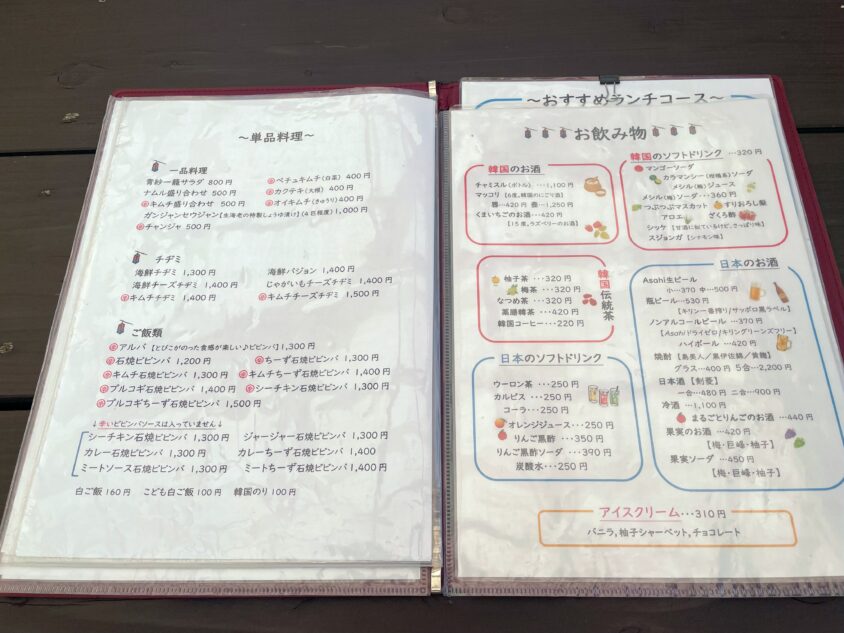 ～単品料理～
一品料理
青紗一籠サラダ 800円
ナムル盛り合わせ 500円
辛キムチ盛り合わせ 500円
ガンジャンセウジャン【生海老の特製しょうゆ漬け】(4匹程度)1,000円
辛チャンジャ 500円
辛ペチュキムチ(白菜) 400円
辛カクテキ(大根) 400円
辛オイキムチ(きゅうり)400円
チヂミ
海鮮チヂミ 1,300円
海鮮チーズチヂミ 1,400円
辛キムチチヂミ 1,400円
海鮮パジョン 1,400円
じゃがいもチーズチヂミ 1,400円
辛キムチチーズチヂミ 1,500円
ご飯類
辛アルバ【とびこがのった食感が楽しい♪ビビンバ】1,300円
辛石焼ビビンバ 1,200円
辛キムチ石焼ビビンバ 1,300円
辛プルコギ石焼ビビンバ 1,400円
辛プルコギちーず石焼ビビンバ 1,500円
辛ちーず石焼ビビンバ 1,300円
辛キムちーず石焼ビビンバ 1,400円
辛シーチキン石焼ビビンバ 1,300円
↓辛いビビンバソースは入っていません↓
シーチキン石焼ビビンバ 1,300円
カレー石焼ビビンバ 1,300円
ミートソース石焼ビビンバ 1,300円
ジャージャー石焼ビビンバ 1,300円
カレーちーず石焼ビビンバ 1,400円
ミートちーず石焼ビビンバ 1,400円
白ご飯 160円 こども白ご飯 100円 韓国のり 100円
～おすすめランチコース～
お飲み物
韓国のお酒
チャミスル(ボトル)...1,100円
マッコリ【6度,韓国のにごり酒】
器…420円 壺…1,250円
くまいちごのお酒...420円
【15度,ラズベリーのお酒】
韓国のソフトドリンク …320円
マンゴーソーダ
カラマンシー(柑橘系)ソーダ
メシル(梅)ジュース
メシル(梅)ソーダ…360円
つぶつぶマスカット
すりおろし梨
アロエ
ざくろ酢
シッケ【甘酒に似ているけど,さっぱり味】
スジョンガ【シナモン味】
韓国伝統茶
柚子茶 ...320円
梅茶 ...320円
なつめ茶 ...320円
薬膳韓茶 ...420円
韓国コーヒー...220円
日本のソフトドリンク
ウーロン茶 ...250円
カルピス ...250円
コーラ...250円
オレンジジュース...250円
りんご黒酢 ...350円
りんご黒酢ソーダ ...390円
炭酸水...250円
日本のお酒
Asahi生ビール
小…370 中…500円
瓶ビール…530円
【キリン一番搾り/サッポロ黒ラベル】
ノンアルコールビール …370円
【Asahiドライゼロ/キリングリーンズフリー】
ハイボール …420円
焼酎【島美人／黒伊佐錦／黄麹】
グラス…400円 5合…2,200円
日本酒【剣菱】
一合…480円 二合…900円
冷酒 …1,100円
まるごとりんごのお酒 …440円
果実のお酒 …420円
【梅・巨峰・柚子】
果実ソーダ …450円
【梅・巨峰・柚子】
アイスクリーム...310円
バニラ,柚子シャーベット,チョコレート